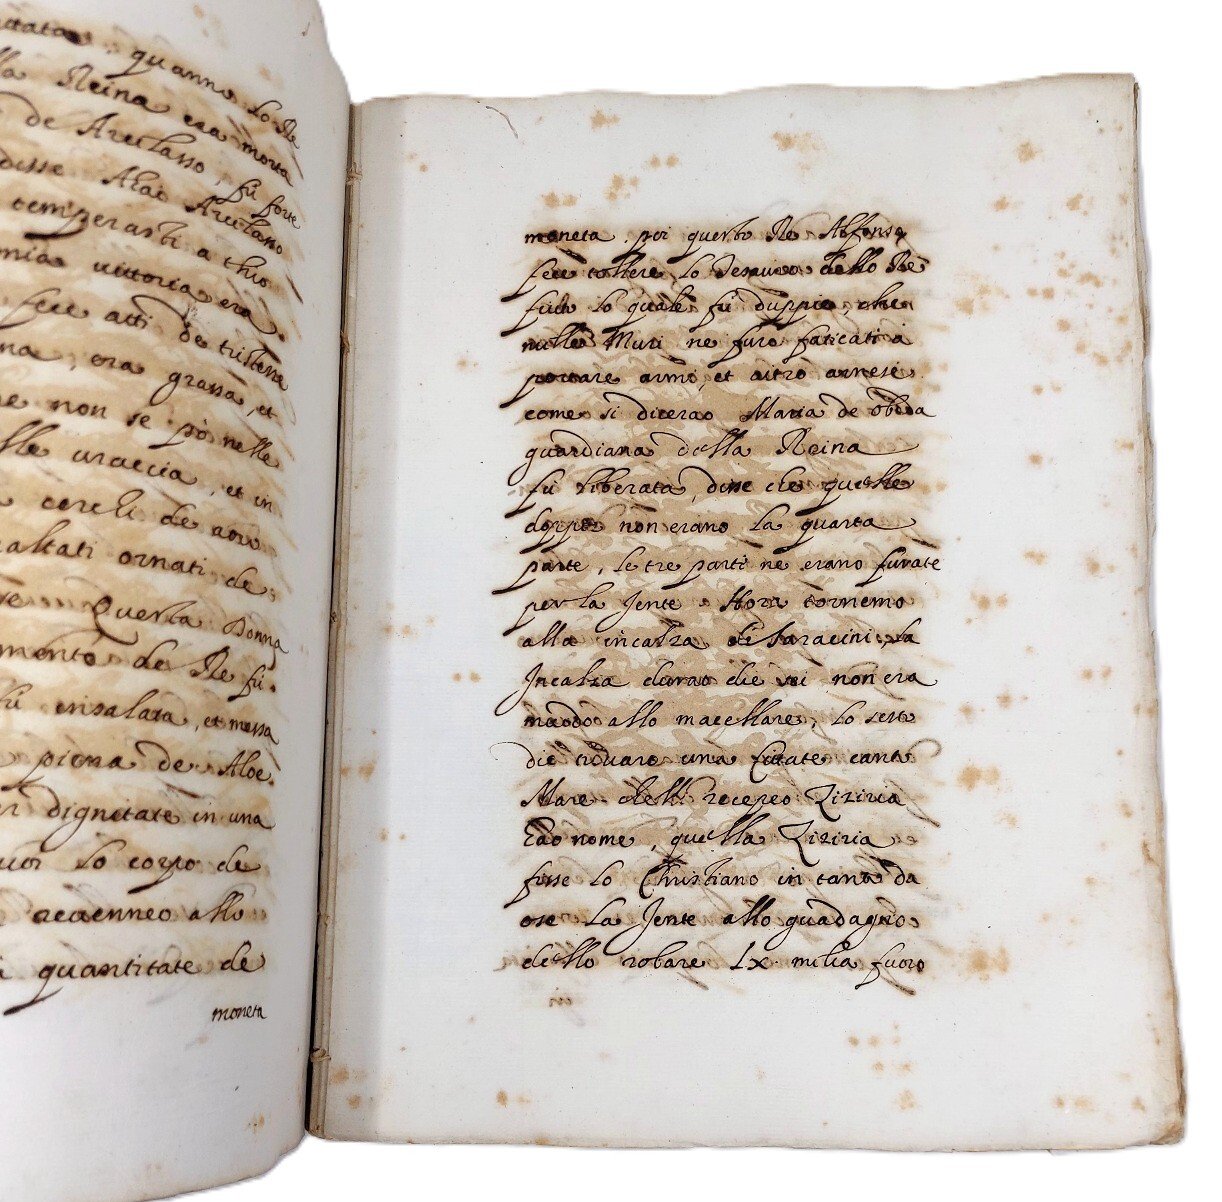 quanno lo Re
la Reina era morta
de Areclasso, fú forte
disse Ahai Areclasso
temperasti a thio
mia vittoria era
fece atti de tristezza
na, era grassa, et
e non se pò nelle
lle vraccia, et in
cerchi de aoro
smaltati ornati de
Re Questa Donna
mento de Re fú
fú ensalata, et messa
piena de Aloe
r dignetate in una
lo corpo de
allo
quantitate de
moneta
moneta, poi questo Re Alfonso
fece tollere lo dello Re
fuch lo quale fú duppio, che
mille Muri ne furo faticati a
portare armo, et aitro arnese
come si dicerao Maria de obeda
guardiana della Reina
fú liberata, disse che quelle
doppie non erano la quarta
parte, le tre parti ne erano furate
per la Jente Hora tornemo
alla incalza de Saracini, la
Incalza durao die vei non era
maodo allo macellare, lo sesto
die trovaro una Cittate canto
Mare che lli recepeo Ziziria
hao nome, quella Ziziria
fisse lo Christiano in tanta da
ose la Jente allo guadagno
dello robare LX. milia fuoro